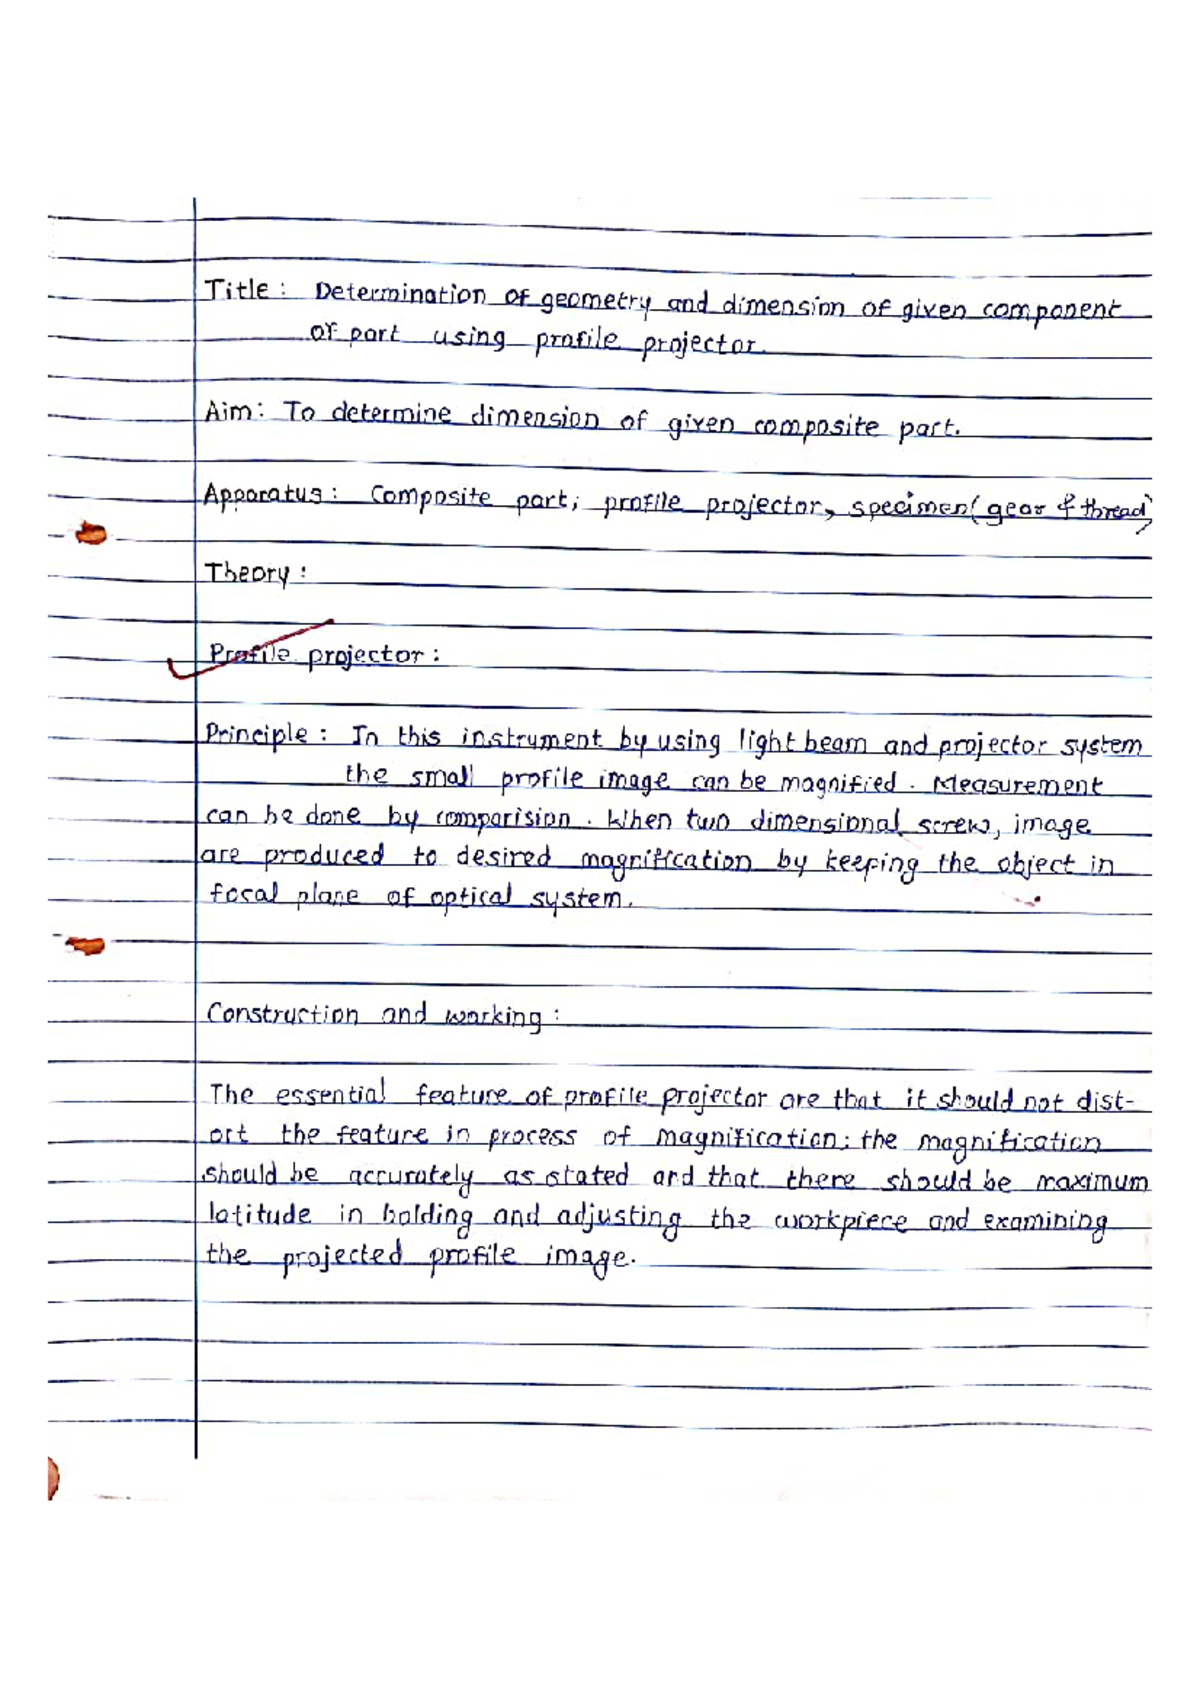 Title : Determination of geometry and dimension of given component
or part using profile projector.
Aim : To determine dimension of given composite part.
Apparatus : Composite part, profile projector, specimen (gear & thread)
Theory :
Profile projector :
Principle : In this instrument by using light beam and projector system
the small profile image can be magnified. Measurement
can be done by comparision. When two dimensional screw, image
are produced to desired magnification by keeping the object in
focal plane of optical system.
Construction and working :
The essential feature of profile projector are that it should not dist-
ort the feature in process of magnification; the magnification
should be accurately as stated and that there should be maximum
latitude in holding and adjusting the workpiece and examining
the projected profile image.